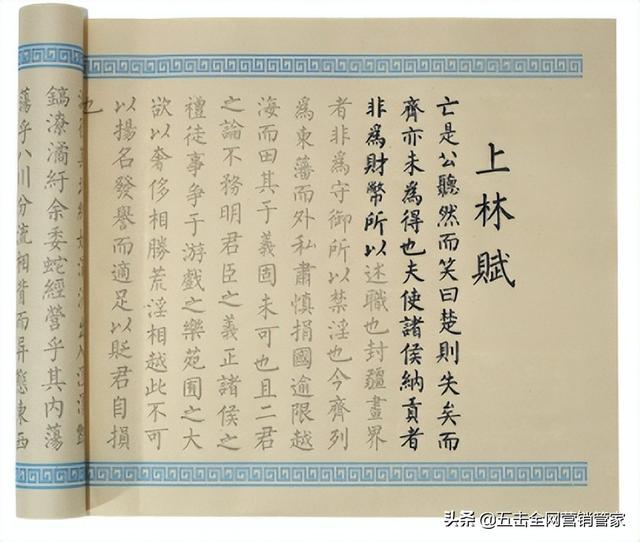 上林賦
亡是公聽然而笑曰楚則失矣而
齊亦未為得也夫使諸侯納貢者
非為財幣所以述職也封疆畫界
者非為守御所以禁淫也今齊列
為東藩而外私肅慎捐國逾限越
海而田其于義固未可也且二君
之論不務明君臣之義正諸侯之
禮徒事爭于游戲之樂苑囿之大
欲以奢侈相勝荒淫相越此不可
以揚名發譽而適足以貶君自損
也
鎬潦潏紆余委蛇經營乎其內蕩
蕩乎八川分流相背而异態東西
头条 @五击全网营销管家